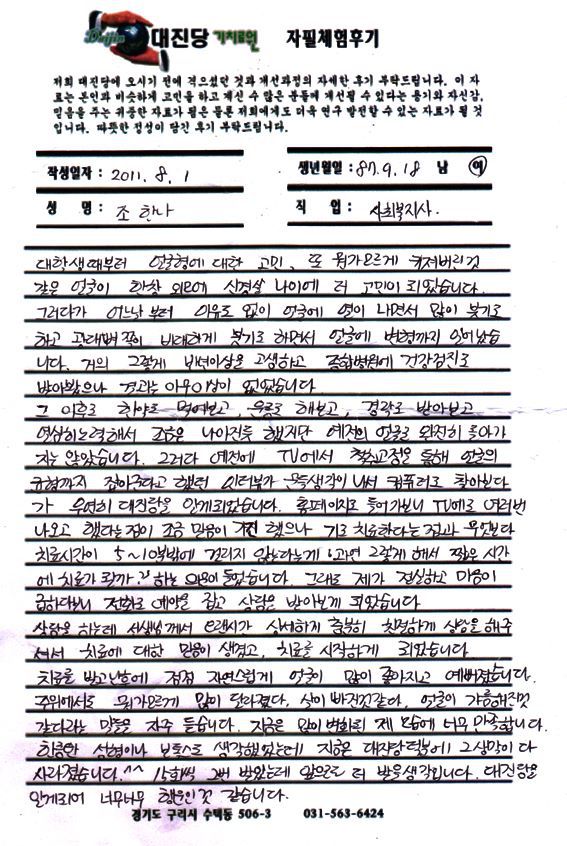 Daijin 대진당 기치료원 자필체험후기
저희 대진당에 오시기 전에 겪으셨던 것과 개선과정의 자세한 후기 부탁드립니다. 이 자
료는 본인과 비슷하게 고민을 하고 계신 수 많은 분들께 개선될 수 있다는 용기와 자신감,
믿음을 주는 귀중한 자료가 됨은 물론 저희에게도 더욱 연구 발전할 수 있는 자료가 될 것
입니다. 따뜻한 정성이 담긴 후기 부탁드립니다.
작성일자 : 2011. 8. 1 생년월일 : 87. 9. 18 남 여
성 명 : 조 한나 직 업 : 사회복지사.
대학생때부터 얼굴형에 대한 고민, 또 뭔가모르게 커져버린것
같은 얼굴이 한창 외모에 신경쓸 나이에 더 고민이 되었습니다.
그러다가 어느날 부터 이유도 없이 얼굴에 열이 나면서 많이 붓기도
하고 광대뼈 쪽이 비대하게 붓기도 하면서 얼굴에 변형까지 일어났습
니다. 거의 그렇게 반년이상을 고생하고 종합병원에 건강검진도
받아봤으나 결과는 아무이상이 없었습니다
그 이후로 한약도 먹어보고, 운동도 해보고, 경락도 받아보고
열심히노력해서 조금은 나아진듯 했지만 예전의 얼굴로 완전히 돌아가
지는 않았습니다. 그러다 예전에 TV에서 척추교정을 통해 얼굴의
균형까지 잡아준다고 했던 것이 문득생각이 나서 컴퓨터로 찾아보다
가 우연히 대진당을 알게되었습니다. 홈페이지로 들어가보니 TV에도 여러번
나오고 했다는점이 조금 믿음이 가긴 했으나 기로 치료한다는점과 무엇보다
치료시간이 5~10분밖에 걸리지 않는다는게 '과연 그렇게 해서 짧은 시간
에 치료가 될까?' 하는 의문이 들었습니다. 그래도 제가 절실하고 마음이
급하다보니 전화로 예약을 잡고 상담을 받아보게 되었습니다
상담을 하는데 선생님께서 오랜시간 상세하지 충분히 친절하게 상담을 해주
셔서 치료에 대한 믿음이 생겼고, 치료를 시작하게 되었습니다.
치료를 받고난후에 점점 자연스럽게 얼굴이 많이 좋아지고 예뻐졌습니다.
주위에서도 뭔가모르게 많이 달라졌다. 살이 빠진것같아, 얼굴이 갸름해진것
같다라는 말들을 자주 듣습니다. 지금은 많이변화된 제 모습에 너무 만족합니다.
한동안 성형이나 보톡스도 생각했었는데 지금은 대진당덕분에 그생각이 다
사라졌습니다.^^ 15회씩 2번 받았는데 앞으로도 더 받을생각입니다. 대진당을
알게되어 너무너무 행운인것 같습니다.
경기도 구리시 수택동 506-3 031-563-6424